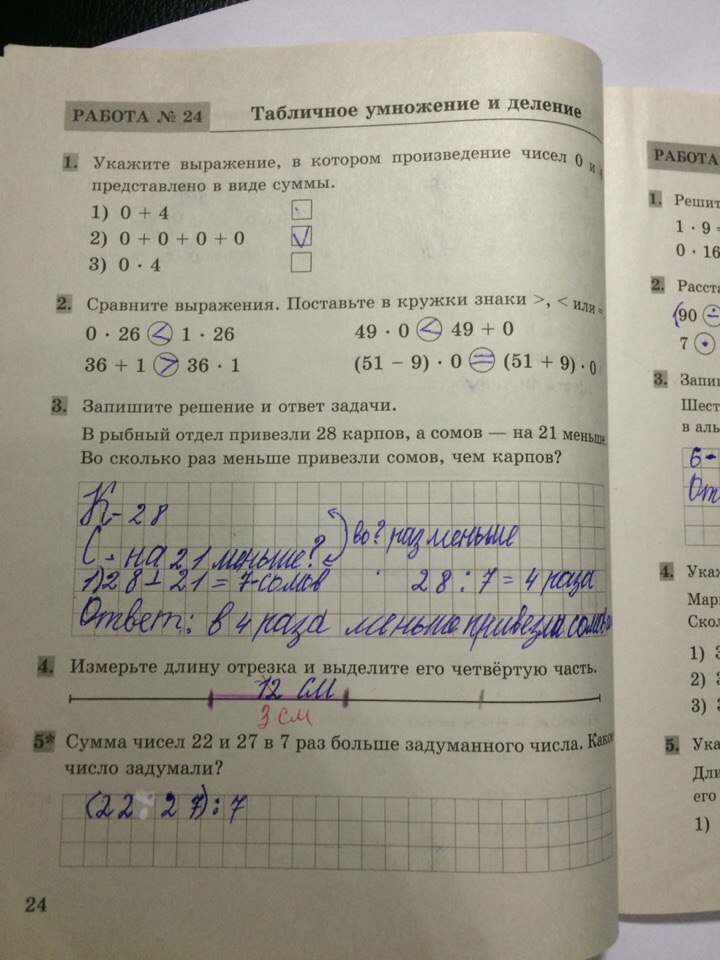 РАБОТА № 24
Табличное умножение и деление
1. Укажите выражение, в котором произведение чисел 0 и 4
представлено в виде суммы.
1) 0 + 4
2) 0 + 0 + 0 + 0 V
3) 0 · 4
2. Сравните выражения. Поставьте в кружки знаки >, < или =
0 · 26 < 1 · 26 49 · 0 < 49 + 0
36 + 1 > 36 · 1 (51 − 9) · 0 = (51 + 9) · 0
3. Запишите решение и ответ задачи.
В рыбный отдел привезли 28 карпов, а сомов — на 21 меньше.
Во сколько раз меньше привезли сомов, чем карпов?
К - 28
С - на 21 меньше? во ? раз меньше
1) 28 - 21 = 7 - сомов 28 : 7 = 4 раза
Ответ: в 4 раза меньше привезли сомов
4. Измерьте длину отрезка и выделите его четвёртую часть.
12 СМ
3 см
5* Сумма чисел 22 и 27 в 7 раз больше задуманного числа. Како
число задумали?
(22 27) : 7
24
РАБОТА
1. Решит
1 · 9 =
0 · 16
2. Расста
(90 ÷
7
3. Запи
Шест
в аль
6 -
От
4. Ука
Мар
Скол
1) 3
2) 3
3) 3
5. Ука
Дли
его
1)